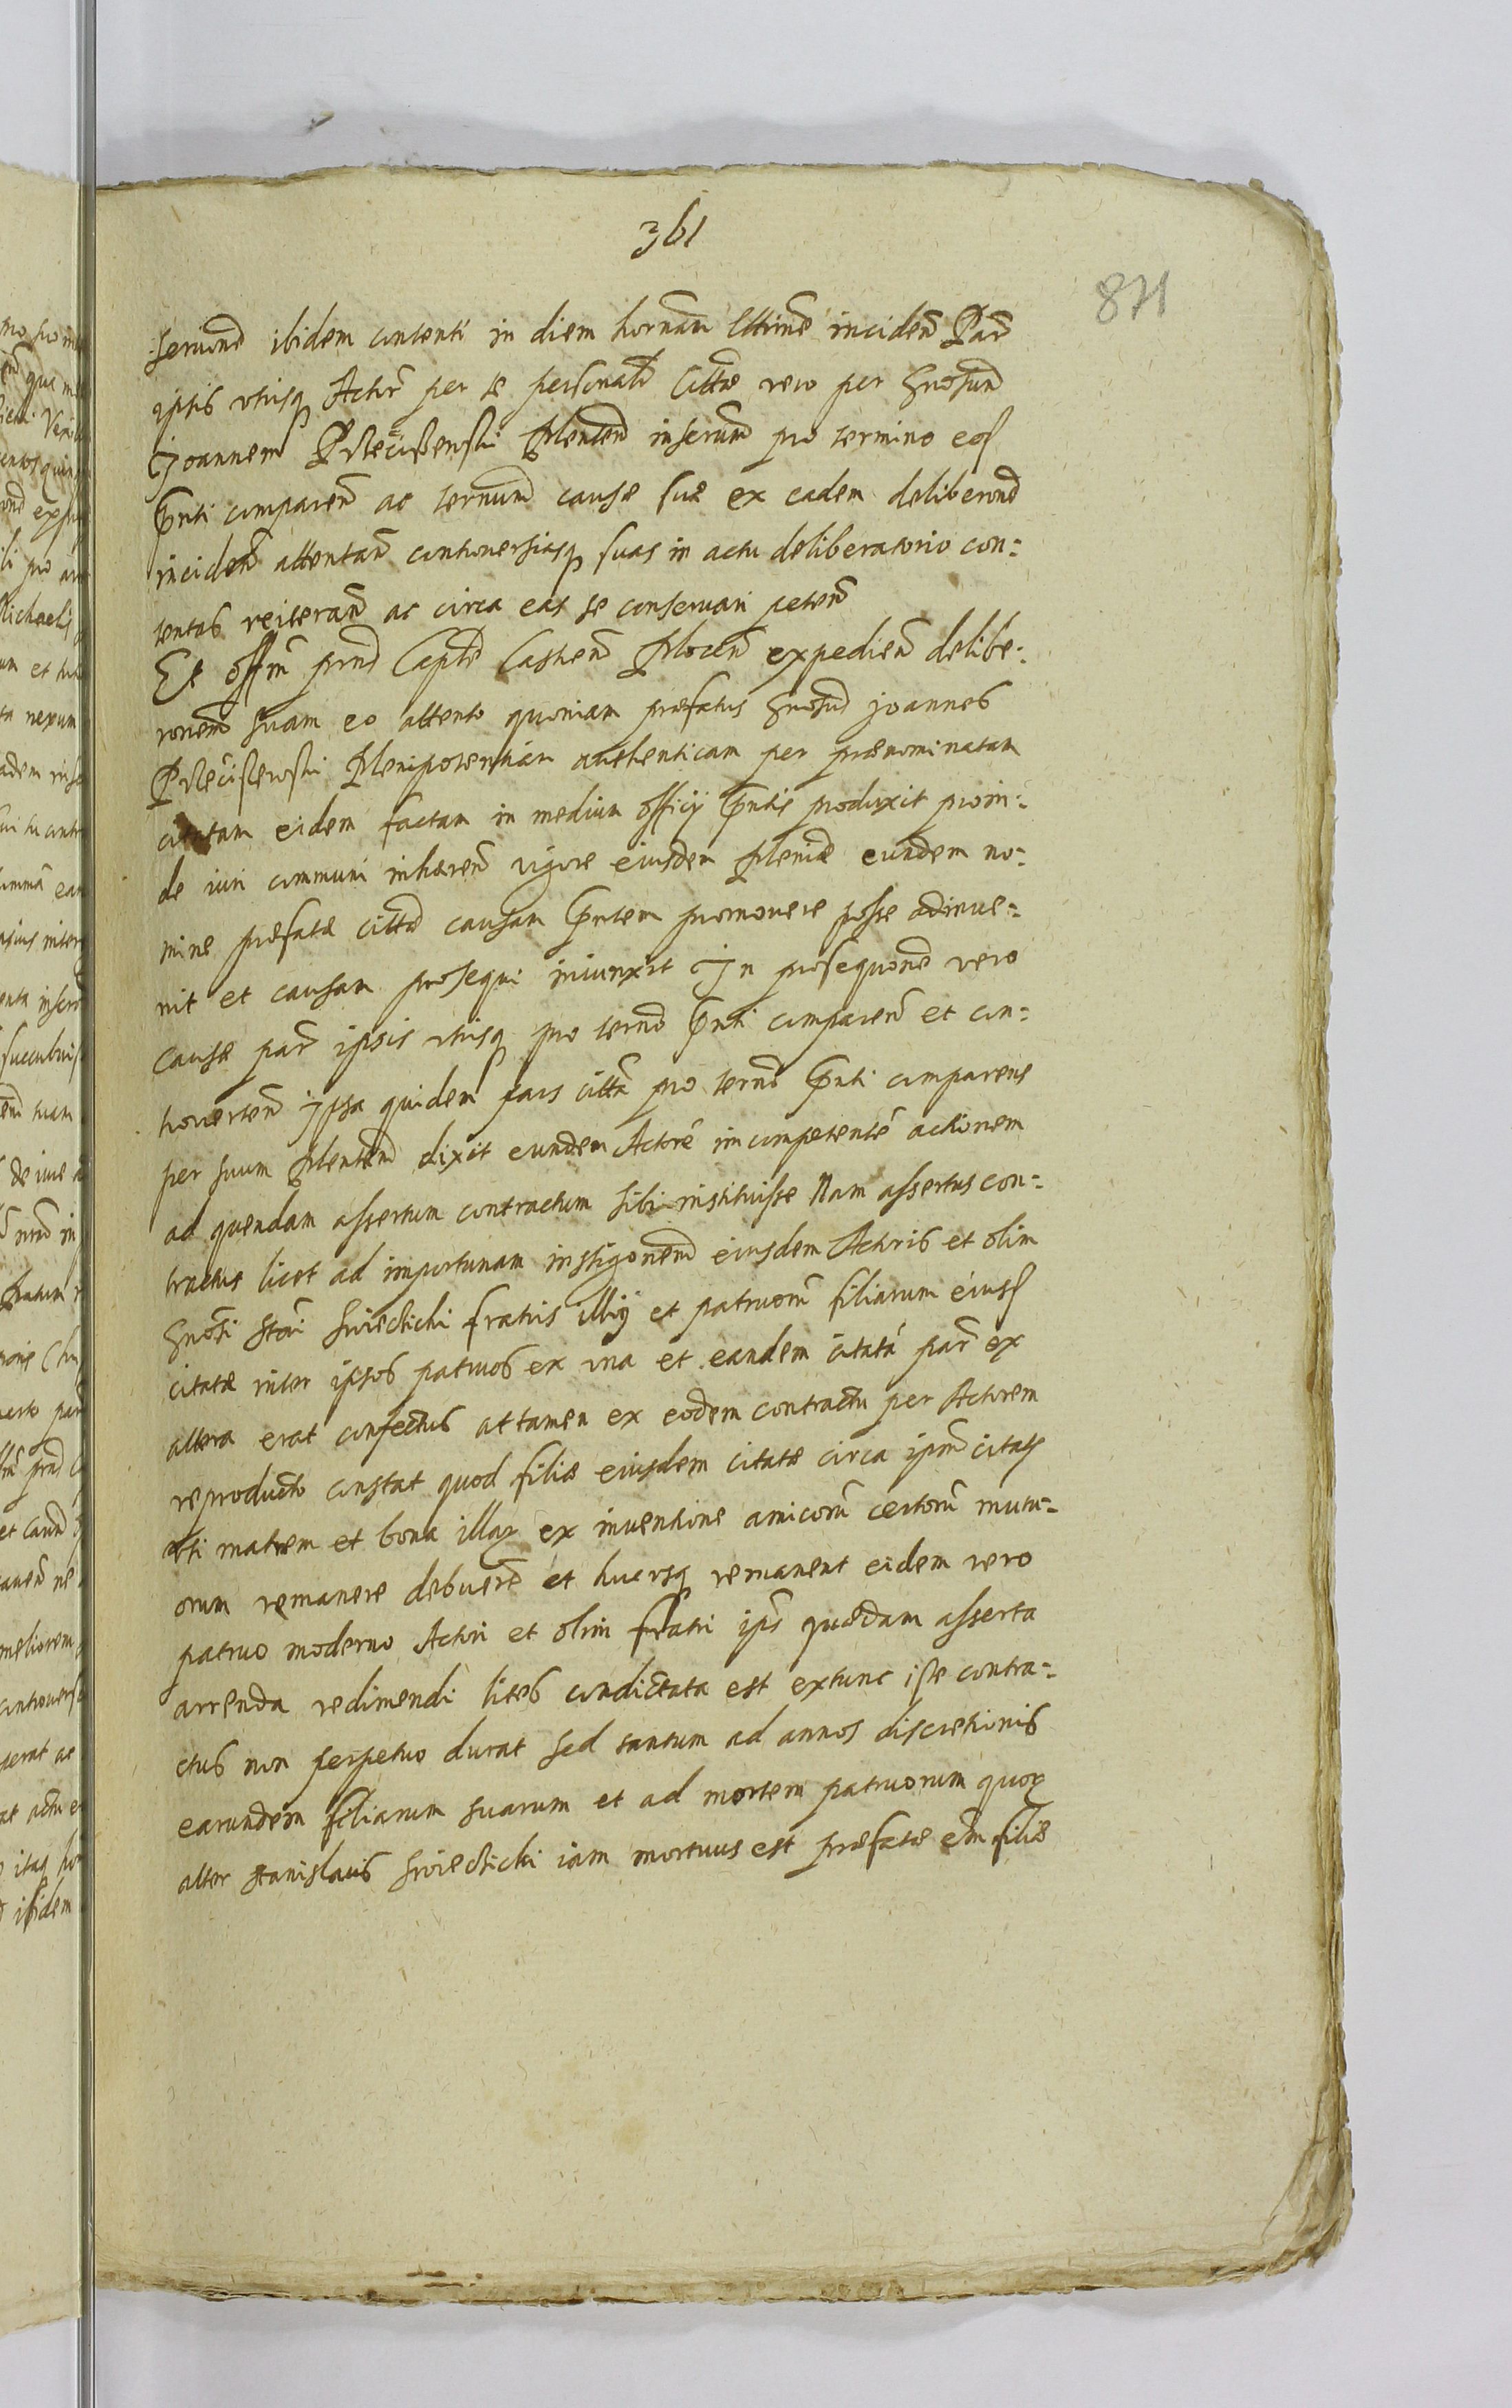 361
871
seriund ibidem contenti in diem hornam lttime inciden Par
ipsis utrisq Actore per se personalr Citta vero per Gnosum
Joannem Plenten inserund pro termino eod
Pnti comparen ac ternum causæ suæ ex eadem deliberone
inciden attentan controversiasq suas in actu deliberatorio con:
tentas reiteran ac circa eas se conservari peten
Et offm prns Capte Castren Plocen expedien delibe:
ronem suam eo attento quoniam præfatus Gnosus Joannes
Plenipotentiam authenticam per prænominatam
citatam eidem factam in medium officij Pntis produxit proin:
de iuri communi inhæren vigore eiusdem Pleniæ eundem no:
mine præfatæ cittæ causam Pntem promovere posse adinve:
nit et causam prosequi iniunxit In prosequone vero
causæ par ipsis utrisq pro terno Pnti comparen et con:
troverten Ipsa quidem pars citta pro terno Pnti comparens
per suum Plenten dixit eundem Actore incompetente actionem
ad quendam assertum contractum sibi instituisse Nam assertus con:
tractus licet ad importunam instigonem eiusdem Actoris et olim
Gnosi Stai Swiecticki fratris illig et patruoru filiarum eiusd
citatæ inter ipsos patruos ex una et eandem citata par ex
altera erat confectus attamen ex eodem contractu per Actorem
reproducto constat quod filiæ eiusdem citatæ circa ipm citat
uti matrem et bona illaz ex inventione amicoru certoru mutu:
orum remanere debuere et hucusq remanent eidem vero
patruo moderno Actori et olim fratri ips quædam asserta
arrenda redimendi lites condictata est extunc iste contra:
ctus non perpetuo durat sed tantum ad annos discretionis
earundem filiarum suarum et ad mortem patruorum quoz
alter Stanislaus Swiecticki iam mortuus est præfatæ em filiæ